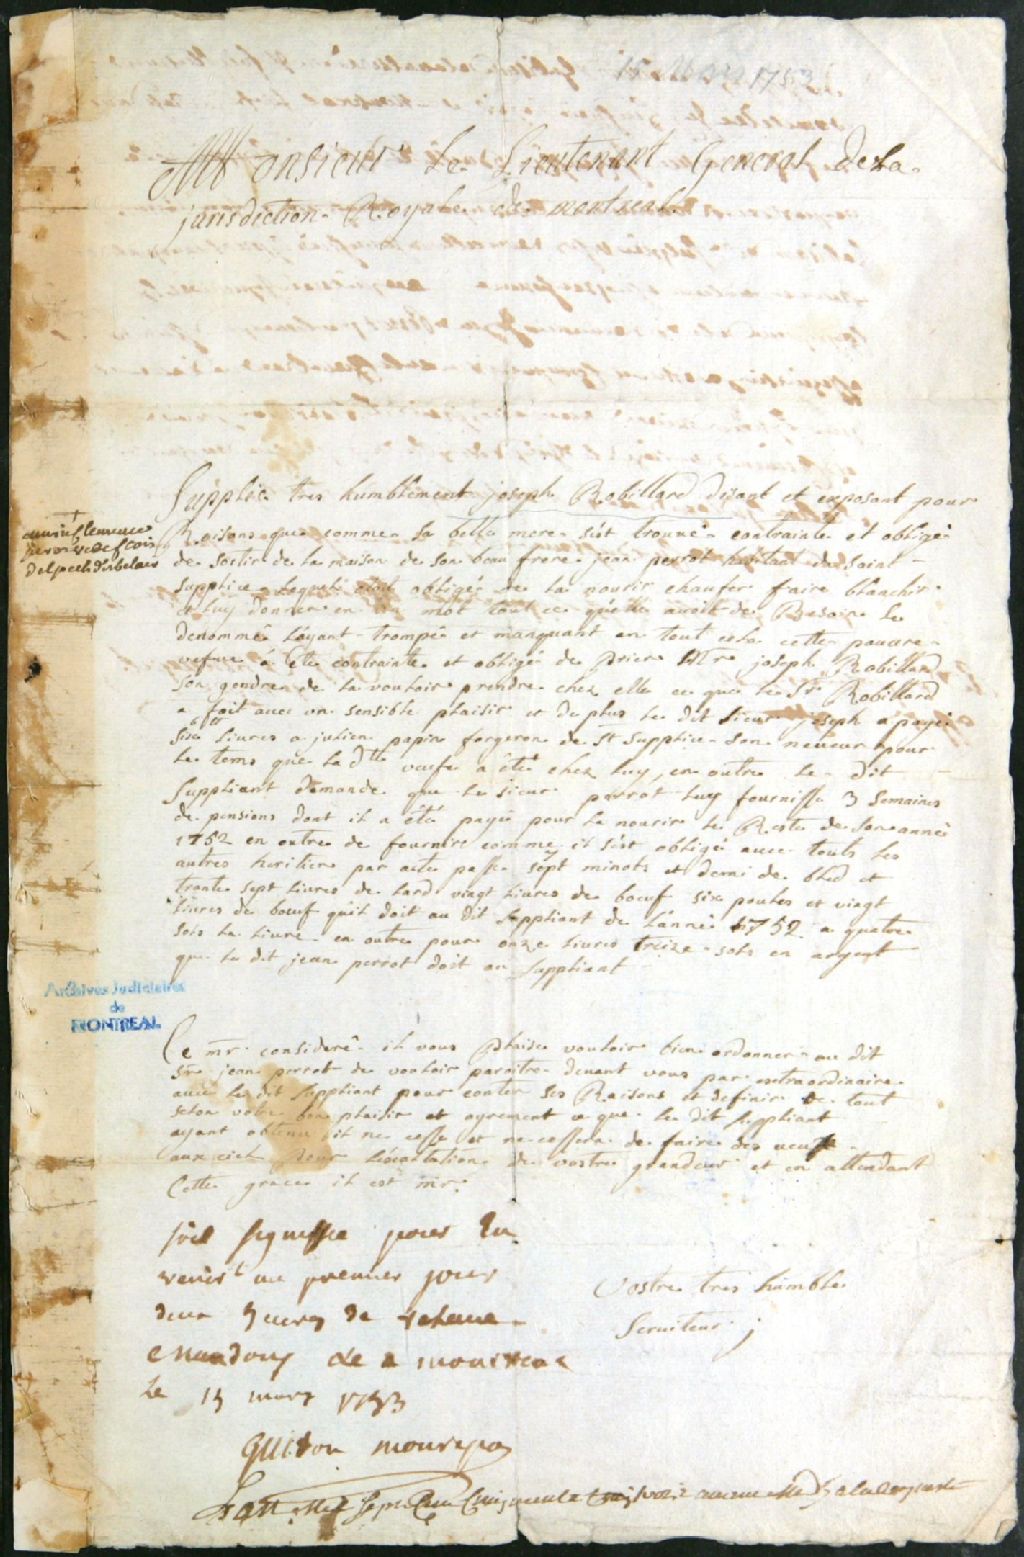 15 Mars 1753
Monsieur Le Lieutenant General de La
jurisdiction Royale de montreal
Supplie tres humblement joseph Robillard disant et exposant pour
Raisons que comme sa belle mere s'est trouvé contrainte et obligé
de sortir de la maison de son beau frere jean perrot habitant de saint
Supplice Lequel étoit obligée de la nourir chaufer faire blanchir
& Luy donner en un mot tout ce quelle avoit de Besoin Le
denommé L'ayant trompée et manquant en tout cela cette pauvre
vefve à été contrainte et obligé de prier Mr joseph Robillard
son gendre de la vouloir prendre chez elle ce que le Sr Robillard
a fait avec un sensible plaisir et de plus Le dit sieur joseph a payé
six livres a julien papin forgeron de St Supplice son neveur pour
Le tems que la dtte veufe à été chez Luy, en outre Le dit
Suppliant demande que Le sieur perrot Luy fournisse 3 Semaines
de pensions dont il a été payé pour la nourir Le Reste de son année
1752 en outre de fournir comme il s'est obligé avec touts les
autres heritiers par acte passé sept minots et demi de bled et
trente sept Livres de Lard vingt Livres de boeuf six poules et vingt
Livres de boeuf qu'il doit au dit Suppliant de L'anné 1752 a quatre
sols La Livre en outre pour onze Livres treize sols en argent
que Le dit jean perrot doit au Suppliant
Archives Judiciaires
de
MONTREAL
Ce mr consideré il vous Plaise vouloir bien ordonner au dit
Sr jean perrot de vouloir paroitre devant vous par extraordinaire
avec Le dit Suppliant pour conter ses Raisons et definir de tout
selon votre bon plaisir et agrement ce que Le dit Suppliant
ayant obtenu il ne cesse et ne cessera de faire des veux
aux ciel pour L'exaltation de vostre grandeur et en attendant
Cette grace il est mr.
soit signiffié pour En
venir au premier jour
deux heures de relevée
Mandons &c a montreal
Le 15 mars 1753
Guiton monrepos
Vostre tres humble
Serviteur j
L'an Mil Sept Cent Cinquante trois